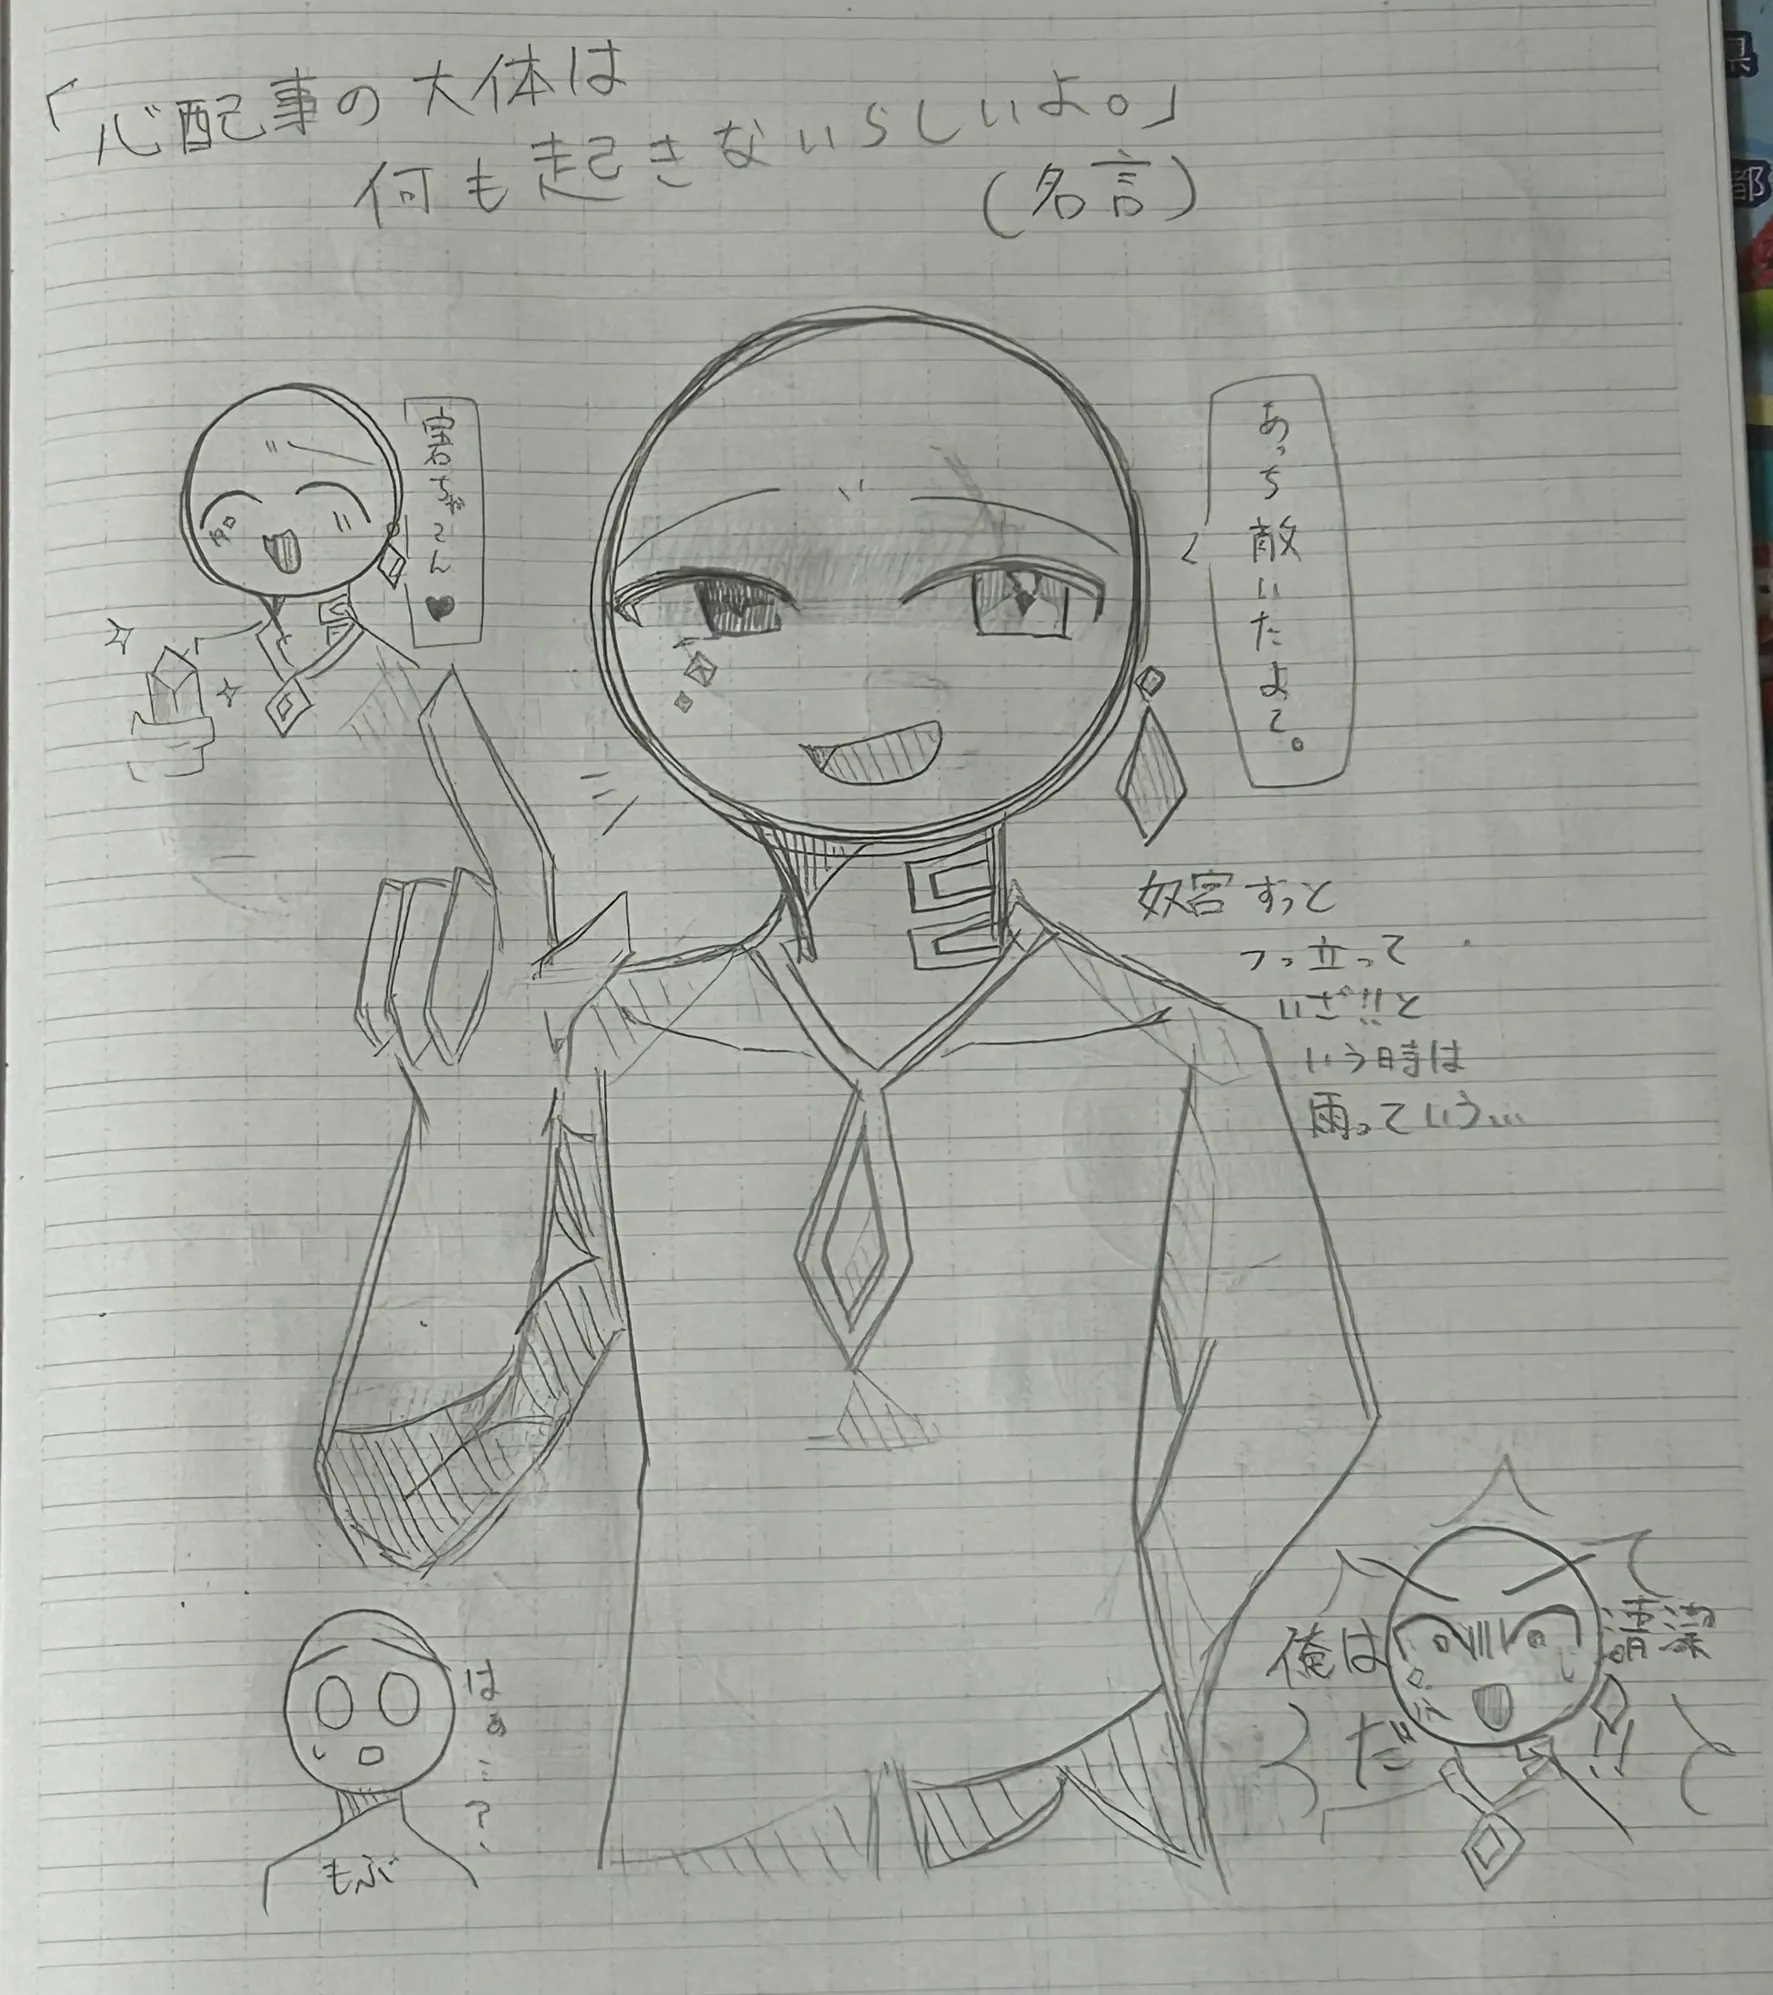 「心配事の大体は
何も起きないらしいよ。」
(名言)
宝石ちゃ〜ん♥
あっち敵いたよ〜。
奴
ずっと
つっ立って
いざ!!と
いう時は
っていう...
俺は
清潔
だ
!!
はぁ…?
もぶ
県
都